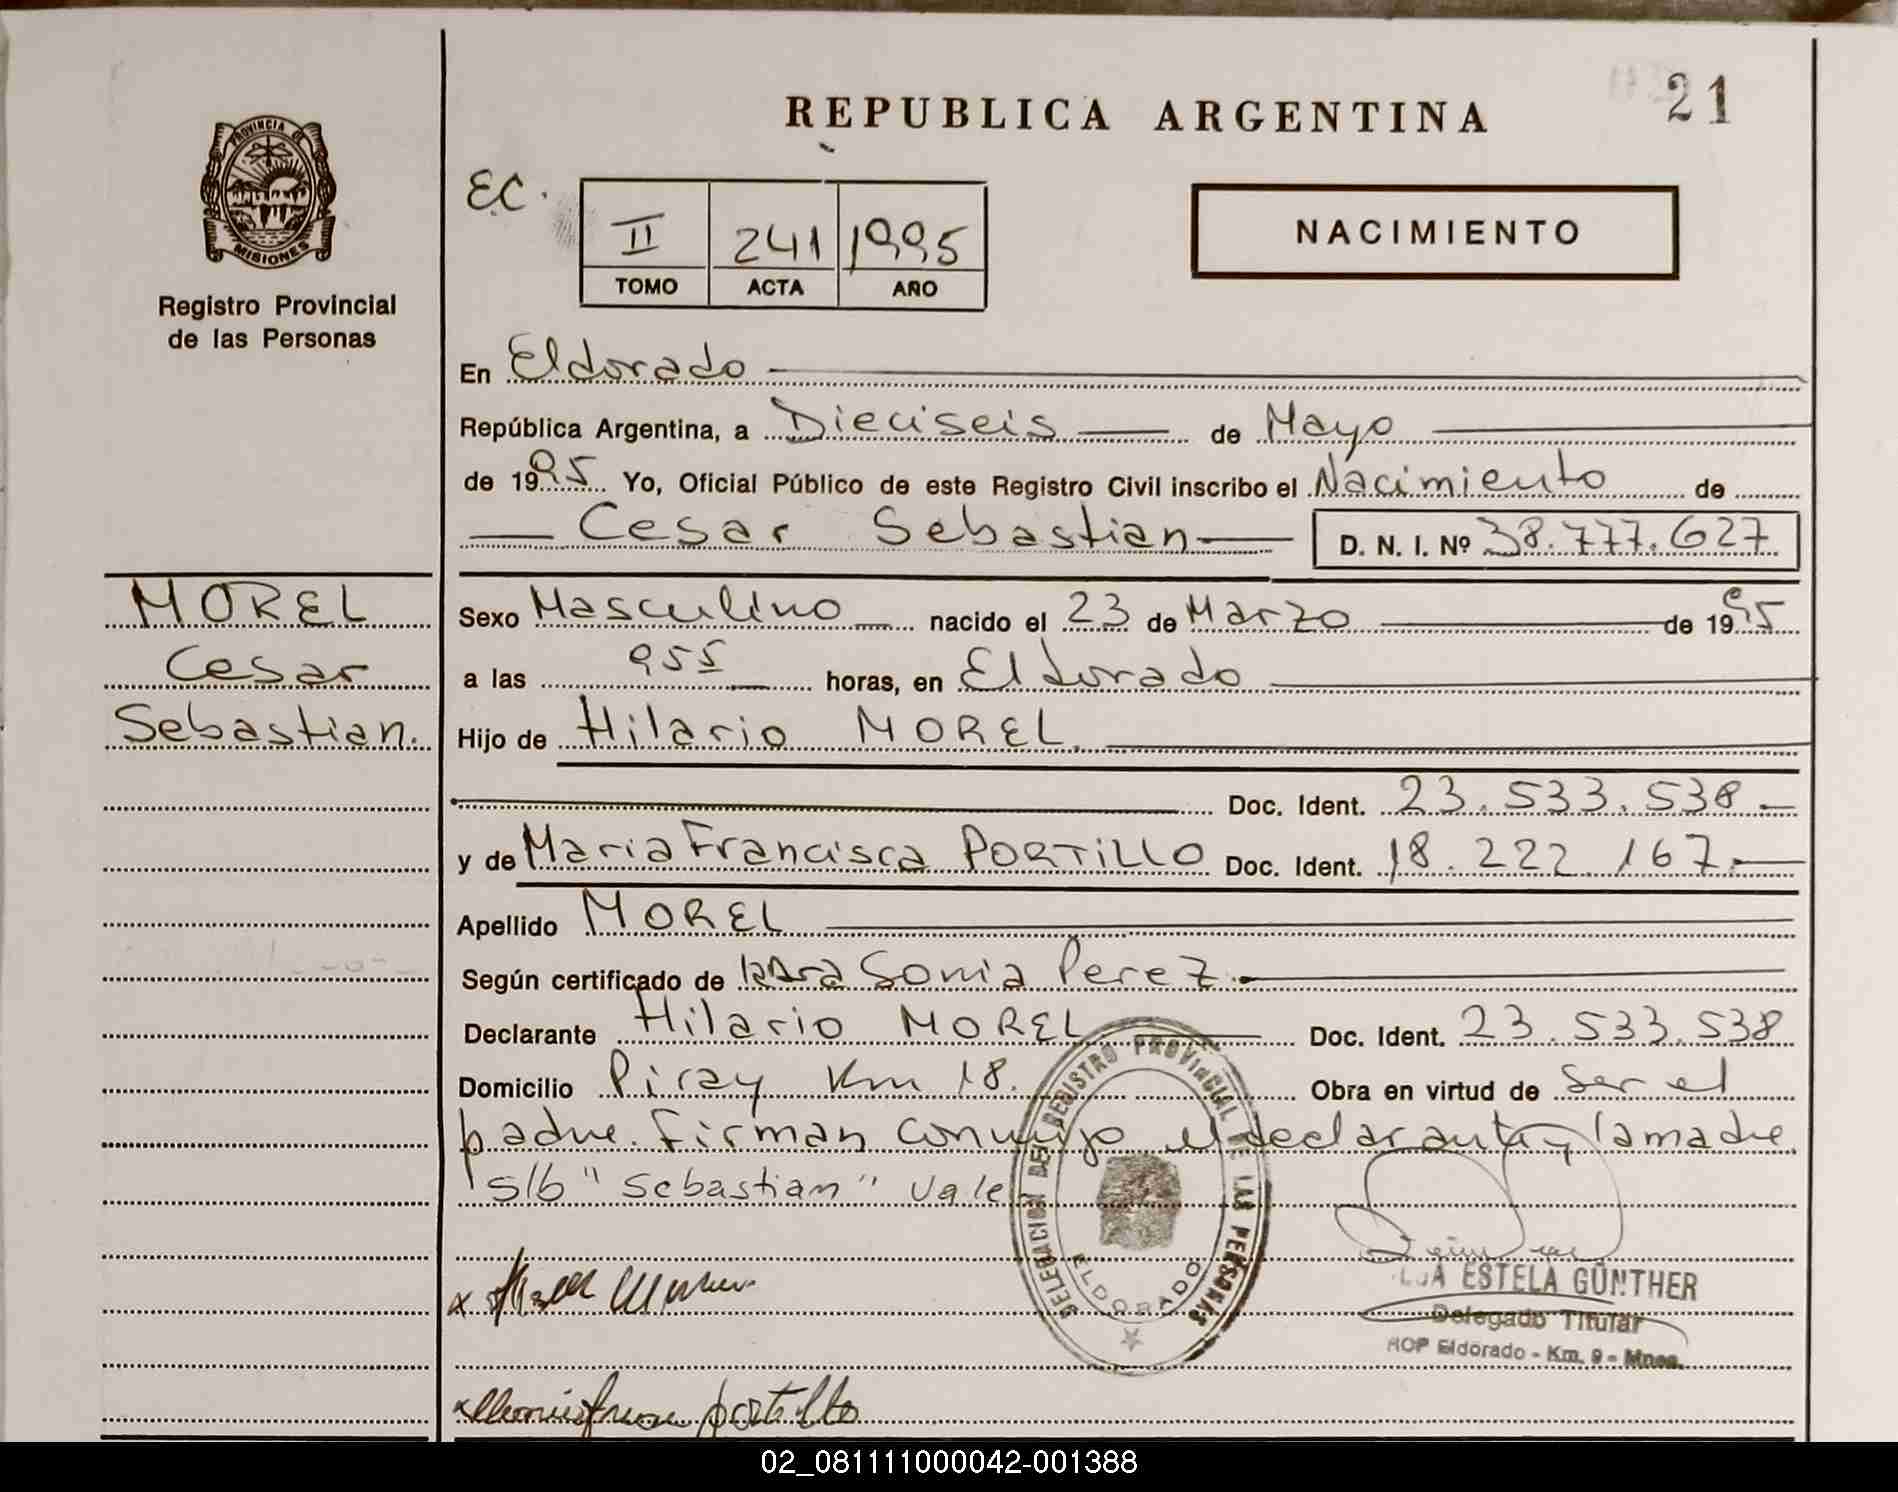 21
REPUBLICA ARGENTINA
PROVINCIA DE
MISIONES
Registro Provincial
de las Personas
E.C.
II 241 1995
TOMO ACTA AÑO
NACIMIENTO
En Eldorado
República Argentina, a Dieciseis de Mayo
de 1995 Yo, Oficial Público de este Registro Civil inscribo el Nacimiento de
Cesar Sebastian D. N. I. Nº 38.777.627
MOREL
Cesar
Sebastian.
Sexo Masculino nacido el 23 de Marzo de 1995
a las 955 horas, en Eldorado
Hijo de Hilario MOREL
Doc. Ident. 23.533.538
y de Maria Francisca PORTILLO Doc. Ident. 18.222.167
Apellido MOREL
Según certificado de Sonia Perez
Declarante Hilario MOREL Doc. Ident. 23.533.538
Domicilio Piray Km 18. Obra en virtud de ser el
padre. Firman conmigo el declarante y la madre
s/b "Sebastian" vale
DELEGACION DEL REGISTRO PROVINCIAL DE LAS PERSONAS
ELDORADO
ESTELA GÜNTHER
Delegado Titular
RCP Eldorado - Km. 9 - Mnes.
portillo
02_081111000042-001388